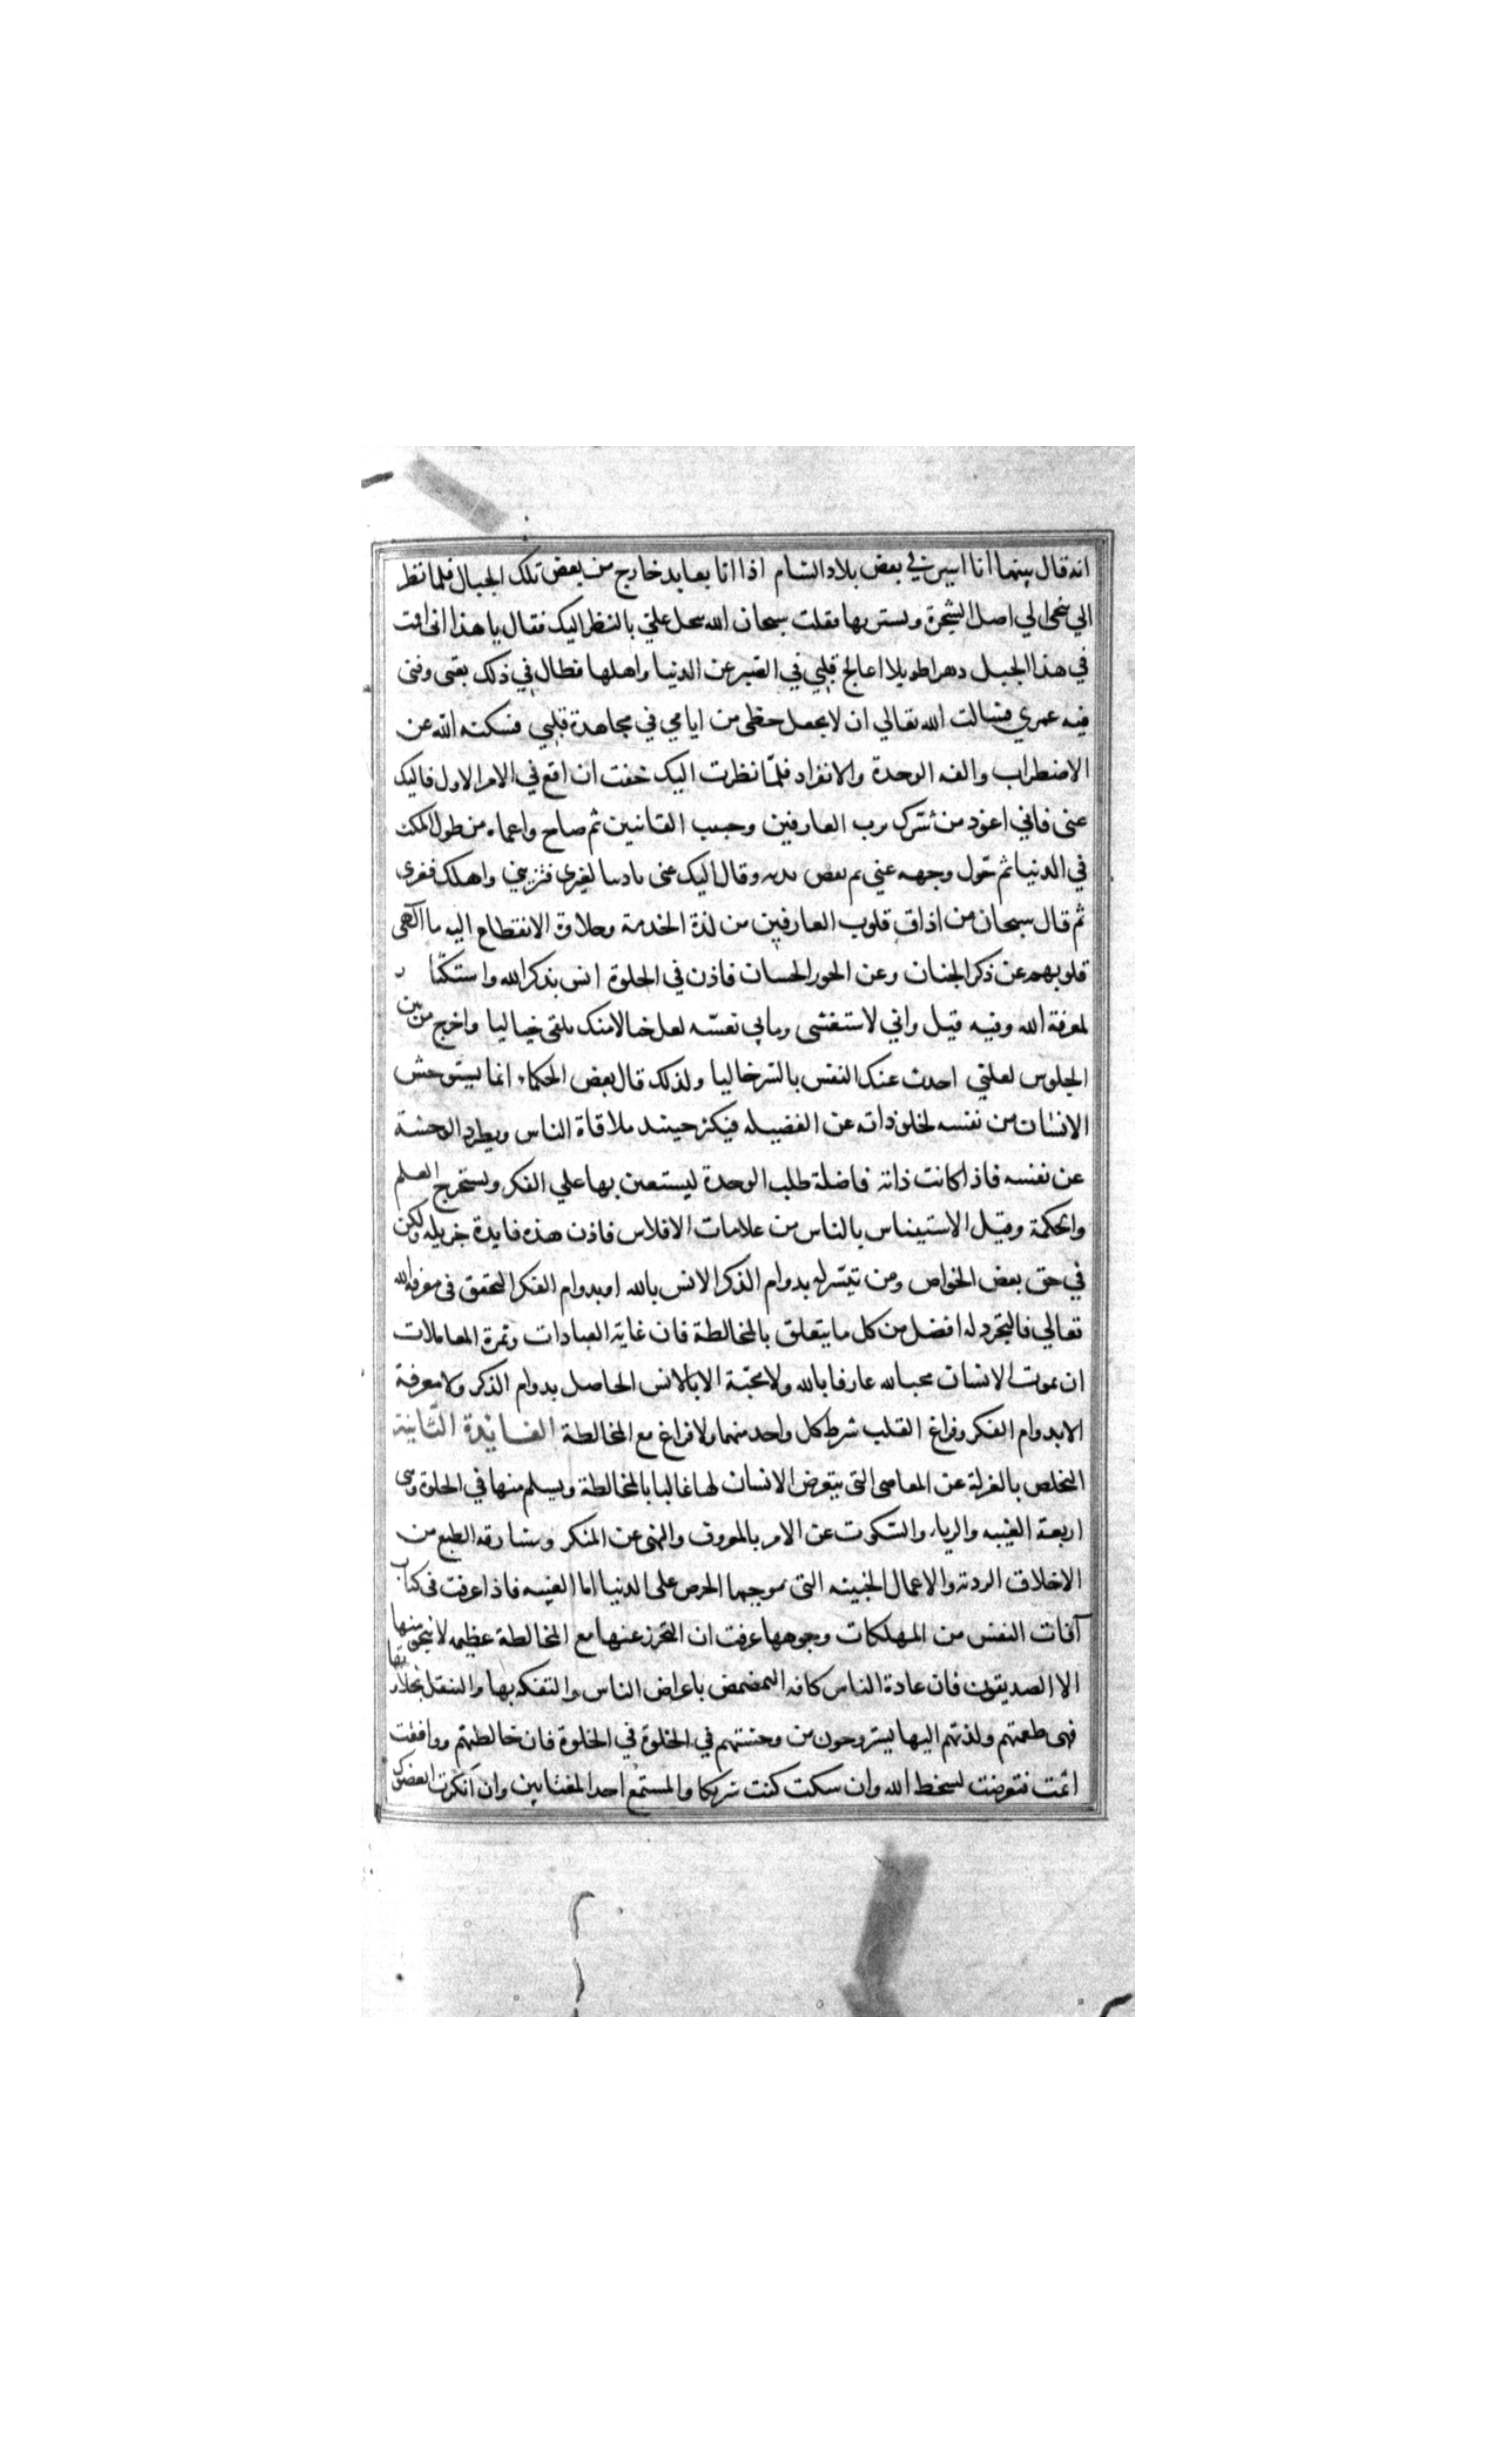 انه قال بينما انا اسير في بعض بلاد الشام اذا انا بعابد خارج من بعض تلك الجبال فلما نظر
الي تنحى الي اصل الشجرة وتستر بها فقلت سبحان الله تبخل علي بالنظر اليك فقال يا هذا اني اقمت
في هذا الجبل دهرا طويلا اعالج قلبي في الصبر عن الدنيا واهلها فطال في ذلك تعبي وفني
فيه عمري فسالت الله تعالي ان لا يجعل حظي من ايامي في مجاهدة قلبي فسكنه الله عن
الاضطراب والفه الوحدة والانفراد فلمّا نظرت اليك خفت ان اقع في الامر الاول فاليك
عني فاني اعوذ من شرك برب العارفين وحبيب القانتين ثم صاح واغماه من طول المكث
في الدنيا ثم حوّل وجهه عني ثم نفض يديه وقال اليك عني يا دنيا لغيري فتزيني واهلك فغري
ثم قال سبحان من اذاق قلوب العارفين من لذة الخدمة وحلاوة الانقطاع اليه ما الهى
قلوبهم عن ذكر الجنان وعن الحور الحسان فاذن في الخلوة انس بذكر الله واستكثار
لمعرفة الله وفيه قيل واني لاستغشى وما بي نعسة لعل خيالا منك يلقى خياليا واخرج من بين
الجلوس لعلني احدث عنك النفس بالسر خاليا ولذلك قال بعض الحكماء انما يستوحش
الانسان من نفسه لخلو ذاته عن الفضيله فيكثر حينئد ملاقاة الناس ويطرد الوحشة
عن نفسه فاذا كانت ذاته فاضلة طلب الوحدة ليستعين بها علي الفكر ويستخرج العلم
والحكمة وقيل الاستيناس بالناس من علامات الافلاس فاذن هذه فايدة جزيله ولكن
في حق بعض الخواص ومن تيسّر له بدوام الذكر الانس بالله او بدوام الفكر التحقق في معرفة الله
تعالي فالتجرد له افضل من كل ما يتعلق بالمخالطة فان غاية العبادات وثمرة المعاملات
ان يموت الانسان محبا لله عارفا بالله ولا محبّة الا بالانس الحاصل بدوام الذكر ولا معرفة
الا بدوام الفكر وفراغ القلب شرط كل واحد منهما ولا فراغ مع المخالطة الفائدة الثّانية
التخلص بالعزلة عن المعاصي التي يتعرض الانسان لها غالبا بالمخالطة ويسلم منها في الخلوة وهي
اربعة الغيبه والرياء والسكوت عن الامر بالمعروف والنهي عن المنكر ومسارقة الطبع من
الاخلاق الردية والاعمال الخبيثه التي يوجبها الحرص على الدنيا اما الغيبه فاذا عرفت في كتاب
آفات النفس من المهلكات وجوهها عرفت ان التحرز عنها مع المخالطة عظيمه لا ينجو منها
الا الصديقون فان عادة الناس كافه التمضمض باعراض الناس والتفكه بها والتنقل بحلاوتها
فهي طعمتهم ولذتهم اليها يستروحون من وحشتهم في الخلوة في الخلوة فان خالطتهم ووافقت
اثمت فتعرضت لسخط الله وان سكت كنت شريكا والمستمع احد المغتابين وان انكرت ابغضوك